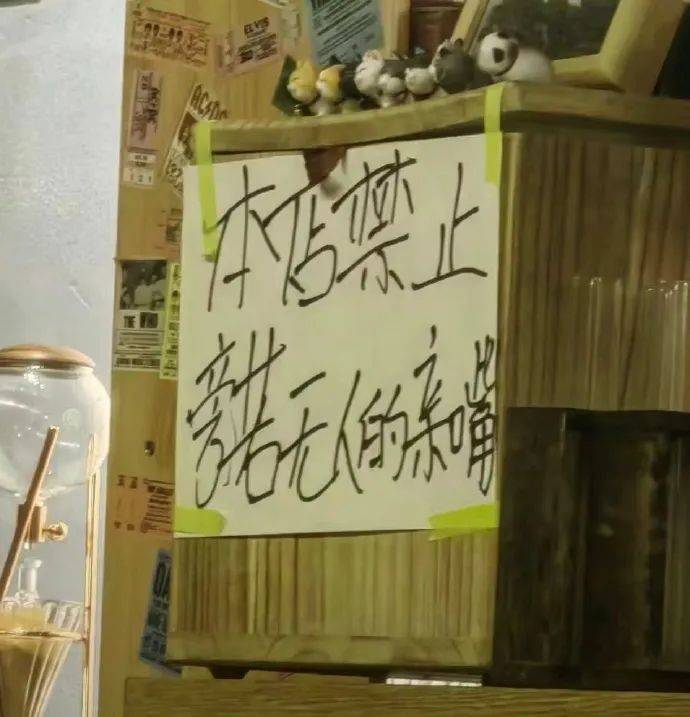 ELVIS
AC/DC
本店禁止
旁若无人的亲嘴
THE WHO